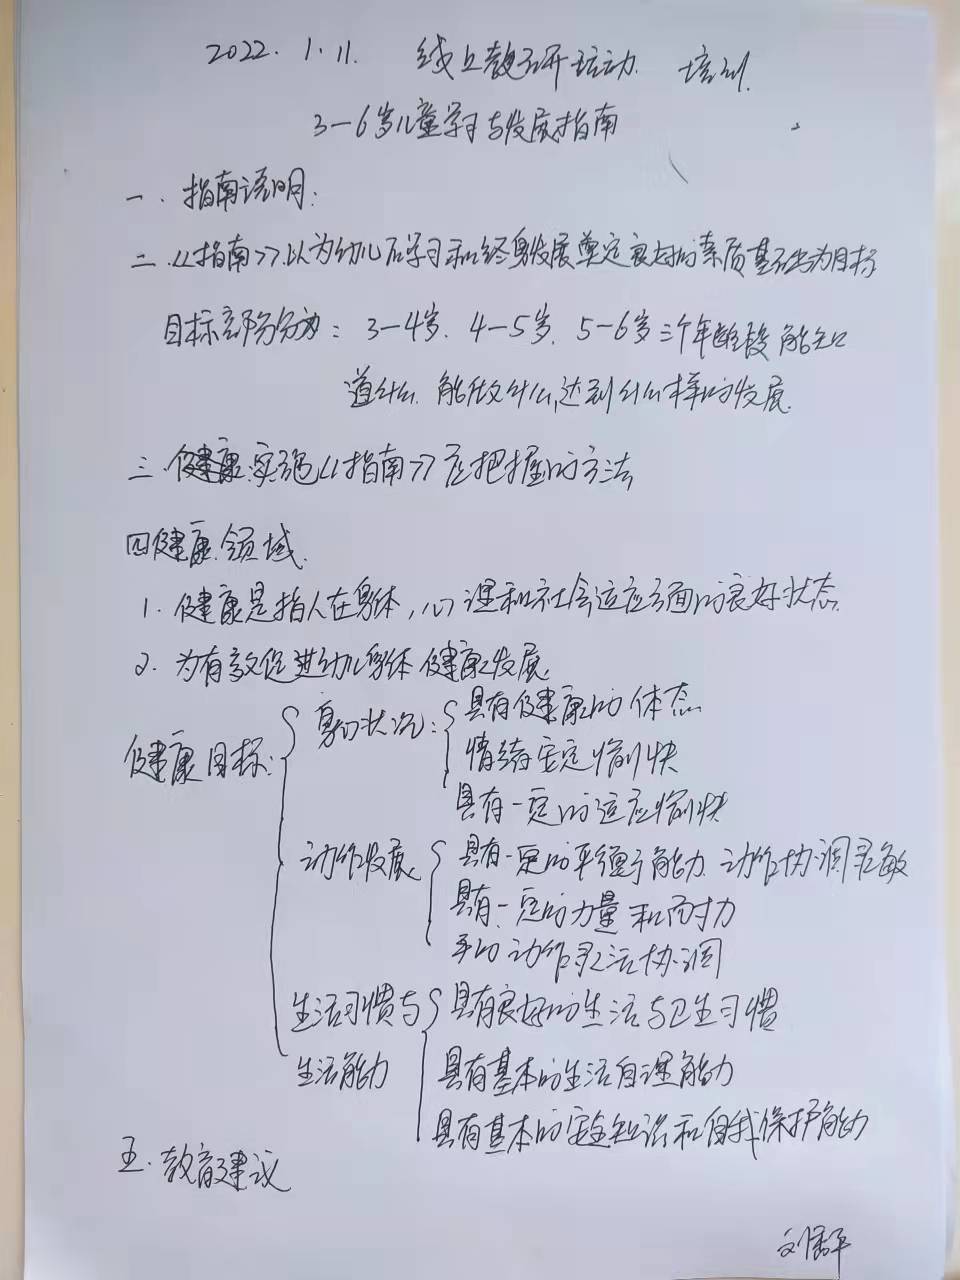 2022.1.11. 线上教研活动 培训
3—6岁儿童学习与发展指南
一.指南说明:
二.《指南》以为幼儿后学习和终身发展奠定良好的素质基础为目标
目标部分分为:3—4岁.4—5岁.5—6岁三个年龄段能知
道什么.能做什么,达到什么样的发展.
三.健康.实施《指南》应把握的方法
四健康领域.
1.健康是指人在身体,心理和社会适应方面的良好状态.
2.为有效促进幼儿身体健康发展
健康目标:
身心状况:
具有健康的体态
情绪安定愉快
具有一定的适应愉快
动作发展
具有一定的平衡能力.动作协调灵敏
具有一定的力量和耐力
手的动作灵活协调
生活习惯与
生活能力
具有良好的生活与卫生习惯
具有基本的生活自理能力
具有基本的安全知识和自我保护能力
五.教育建议